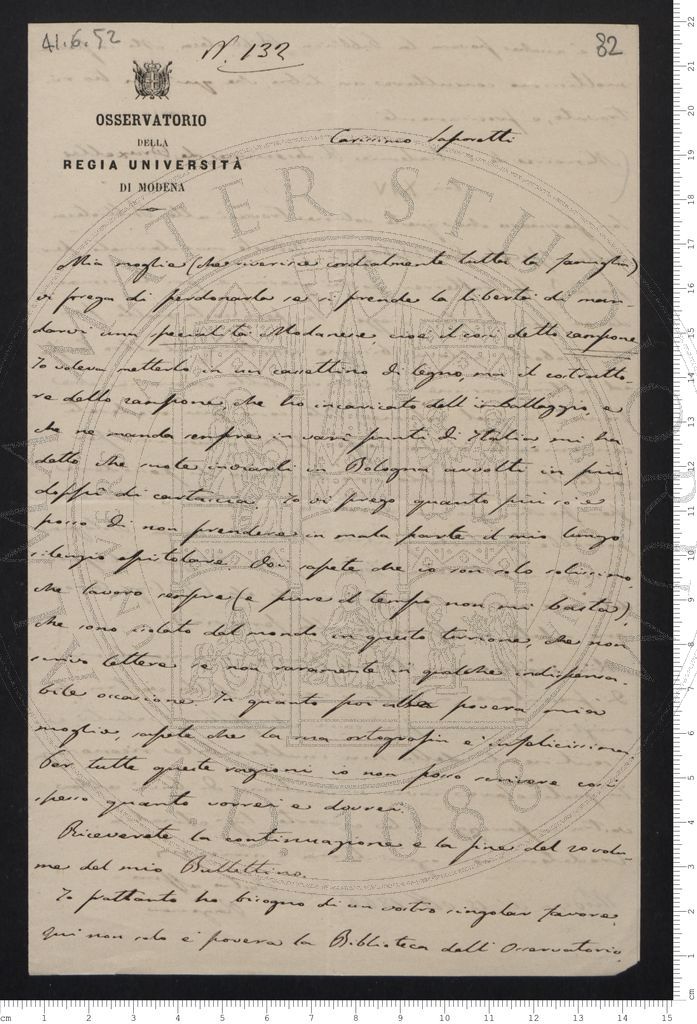 41.6.52
N. 132
82
OSSERVATORIO
DELLA
REGIA UNIVERSITÀ
DI MODENA
Carissimo Saporetti
Mia moglie (che riverisce cordialmente tutta la famiglia)
vi prega di perdonarla se si prende la libertà di man-
darvi una specialità Modanese, cioè il così detto zampone
Io voleva metterlo in un cassettino di legno, ma il costrutto-
re dello zampone, che ho incaricato dell'imballaggio, e
che ne manda sempre in vari punti di Italia, mi ha
detto che suole inviarli in Bologna avvolti in più
doppi di cartaccia. Io vi prego quanto più so e
posso di non prendere in mala parte il mio lungo
silenzio epistolare. Voi sapete che io son solo solissimo,
che lavoro sempre (e pure il tempo non mi basta),
che sono isolato dal mondo in questo torrione, che non
scrivo lettere se non raramente in qualche indispensa-
bile occasione. In quanto poi alla povera mia
moglie, sapete che la sua ortografia è infelicissima.
Per tutte queste ragioni io non posso scrivere così
spesso quanto vorrei e dovrei.
Riceverete la continuazione e la fine del 20 volu-
me del mio Bullettino.
Io pertanto ho bisogno di un vostro singolar favore.
qui non solo è povera la Biblioteca dell'Osservatorio,
ALMA MATER STUDIORUM
A.D. 1088